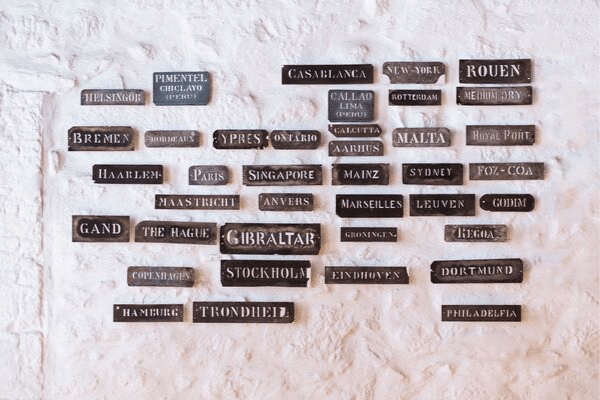 CASABLANCA
NEW-YORK
ROUEN
PIMENTEL
CHICLAYO
(PERU)
HELSINGOR
CALLAO
LIMA
(PERU)
ROTTERDAM
MEDIUM DRY
BREMEN
BORDEAUX
YPRES
ONTARIO
CALCUTTA
AARHUS
MALTA
ROYAL PORT
HAARLEM
PARIS
SINGAPORE
MAINZ
SYDNEY
FOZ-CÔA
MAASTRICHT
ANVERS
MARSEILLES
LEUVEN
GODIM
GAND
THE HAGUE
GIBRALTAR
GRONINGEN
REGOA
COPENHAGEN
STOCKHOLM
EINDHOVEN
DORTMUND
HAMBURG
TRONDHEIL
PHILADELFIA